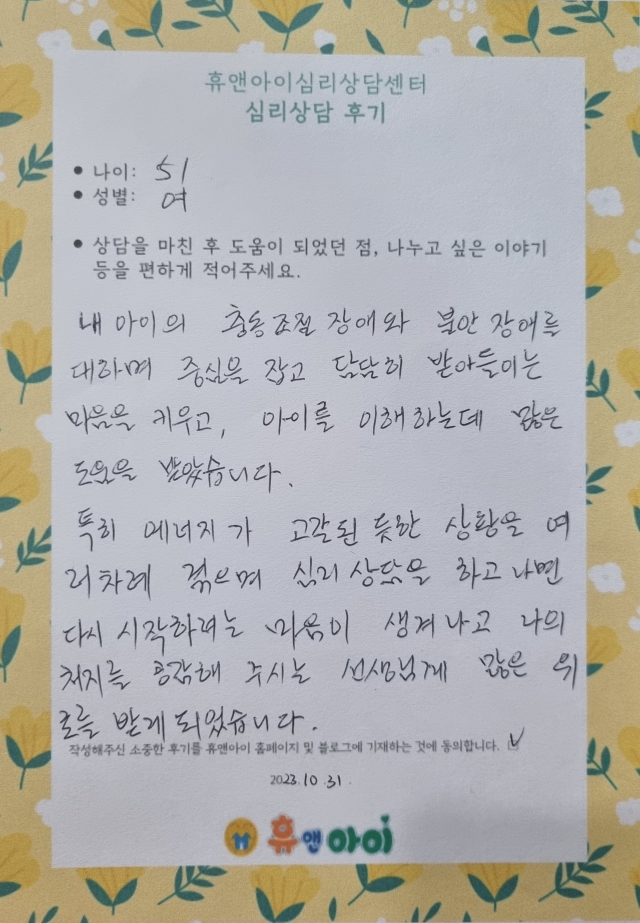 휴앤아이심리상담센터
심리상담 후기
• 나이: 51
• 성별: 여
• 상담을 마친 후 도움이 되었던 점, 나누고 싶은 이야기
등을 편하게 적어주세요.
내 아이의 충동조절 장애와 불안 장애를
대하며 중심을 잡고 담담히 받아들이는
마음을 키우고, 아이를 이해하는데 많은
도움을 받았습니다.
특히 에너지가 고갈된 듯한 상황을 여
러차례 겪으며 심리상담을 하고나면
다시 시작하려는 마음이 생겨나고 나의
처지를 공감해 주시는 선생님께 많은 위
로를 받게 되었습니다.
작성해주신 소중한 후기를 휴앤아이 홈페이지 및 블로그에 기재하는 것에 동의합니다. ☑
2023.10.31.
휴앤아이